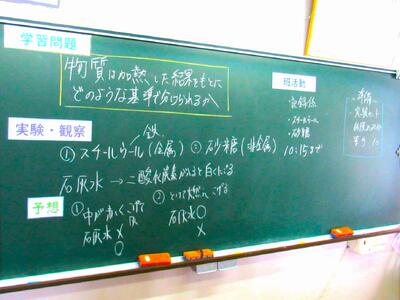 学習問題
物質は加熱した結果をもとに
どのような基準で分けられるか
実験・観察
鉄
①スチールウール(金属) ②砂糖(非金属)
石灰水→二酸化炭素が入ると白くにごる
予想
①
石灰水 X
○
②とけて燃え、こげる
石灰水○
X
班活動
記録係
・スチールウール
・砂糖
10:15まで
準備